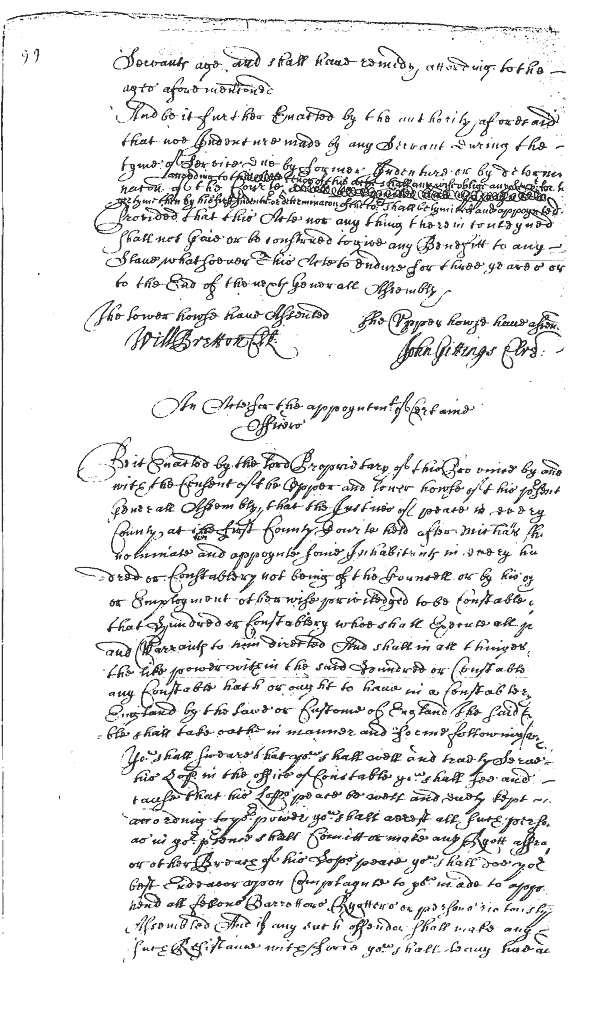 99
Servants age and shall have remedy according to the
age afore mentioned
And be it further Enacted by the authority aforesaid
that noe Indenture made by any Servant during the
tyme of Service due by former Indenture or by determi
nation of the Court according to the tenor of this Act shall any wise oblige any Servant for
Provided that this Acte nor any thing therein conteyned
shall not Giue or be construed to give any Benefitt to any
Slaue whatsoever This Acte to endure for three yeares or
to the End of the next Generall Assembly
The lower howse have Assented The Vpper howse have assen
Will Bretton Clk John Gittings Clre
An Acte for the appoyntmt of Certaine
Officers
Be it Enacted by the Lord Proprietary of this Province by and
with the Consent of the Vpper and lower howse of this present
Generall Assembly, that the Justices of peace in every
County, at the first County Courte held after Michās shall
nominate and appoynte some Inhabitant in every hu
dred or Constablery not being of the Councell or by his
or Employment otherwise priviledged to be Constable
that Hundred or Constablery whoe shall Execute all
and Warrants to him directed And shall in all thinges
the like power within the said Hundred or Constable
any Constable hath or ought to have in a Constabler
England by the Lawe or Custome of England The said
ble shall take oathe in manner and forme following
You shall sweare that you shall well and truely Serve
his Lopp in the office of Constable you shall See and
cause that his Lopps peace be well and duely kept
according to yor power you shall arrest all such perso
as in yor presence shall Comitt or make any Ryott affra
or other Breach of his Lopps peace you shall doe yor
best Endeavor vpon Complaynte to you made to appr
hend all felons Barrettors Ryotters or persons riotously
Assembled And if any such offender shall make any
such Resistance with force you shall